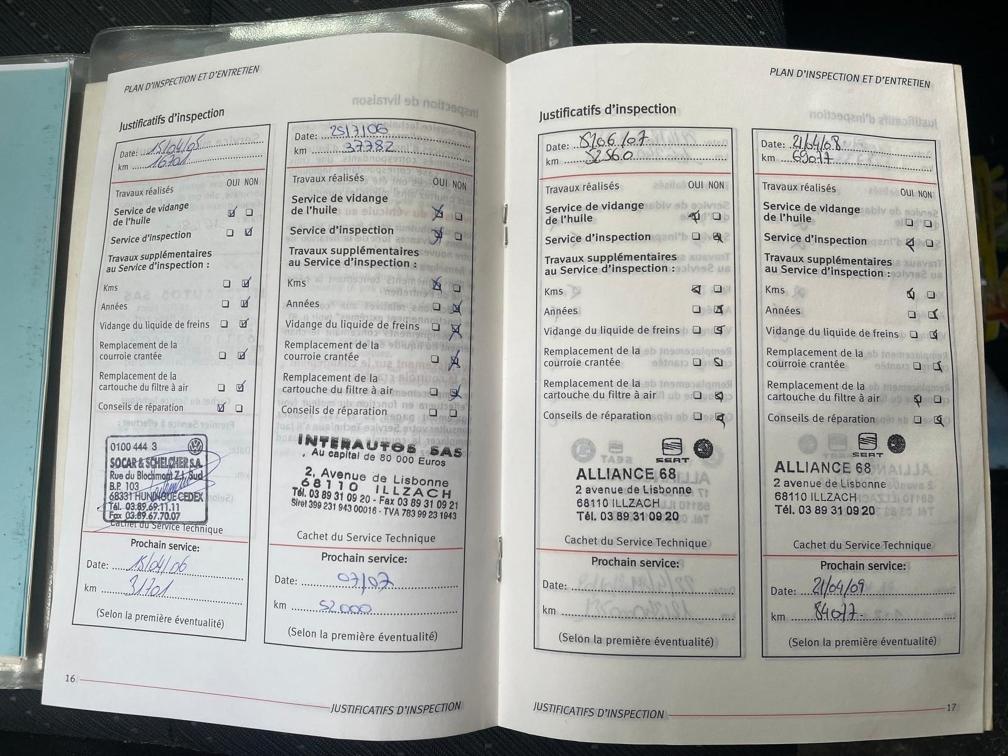 PLAN D'INSPECTION ET D'ENTRETIEN
Justificatifs d'inspection
Date: 15/04/05
km 16701
Travaux réalisés OUI NON
Service de vidange
de l'huile
Service d'inspection
Travaux supplémentaires
au Service d'inspection :
Kms
Années
Vidange du liquide de freins
Remplacement de la
courroie crantée
Remplacement de la
cartouche du filtre à air
Conseils de réparation
0100 444 3
SOCAR & SCHELCHER S.A.
Rue du Blochmont Z.I. Sud
B.P. 103
68331 HUNINGUE CEDEX
Tél. 03.89.69.11.11
Fax 03.89.67.70.07
Cachet du Service Technique
Prochain service:
Date: 15/04/06
km 31701
(Selon la première éventualité)
Date: 25/7/06
km 37782
Travaux réalisés OUI NON
Service de vidange
de l'huile
Service d'inspection
Travaux supplémentaires
au Service d'inspection :
Kms
Années
Vidange du liquide de freins
Remplacement de la
courroie crantée
Remplacement de la
cartouche du filtre à air
Conseils de réparation
INTERAUTOS SAS
Au capital de 80 000 Euros
2, Avenue de Lisbonne
68110 ILLZACH
Tél. 03 89 31 09 20 - Fax 03 89 31 09 21
Siret 399 231 943 00016 - TVA 783 99 23 1943
Cachet du Service Technique
Prochain service:
Date: 07/07
km 52000
(Selon la première éventualité)
16
JUSTIFICATIFS D'INSPECTION
PLAN D'INSPECTION ET D'ENTRETIEN
Justificatifs d'inspection
Date: 06/07
km 52560
Travaux réalisés OUI NON
Service de vidange
de l'huile
Service d'inspection
Travaux supplémentaires
au Service d'inspection :
Kms
Années
Vidange du liquide de freins
Remplacement de la
courroie crantée
Remplacement de la
cartouche du filtre à air
Conseils de réparation
SEAT
ALLIANCE 68
2 avenue de Lisbonne
68110 ILLZACH
Tél. 03 89 31 09 20
Cachet du Service Technique
Prochain service:
Date:
km
(Selon la première éventualité)
Date: 21/04/08
km 69077
Travaux réalisés OUI NON
Service de vidange
de l'huile
Service d'inspection
Travaux supplémentaires
au Service d'inspection :
Kms
Années
Vidange du liquide de freins
Remplacement de la
courroie crantée
Remplacement de la
cartouche du filtre à air
Conseils de réparation
SEAT
ALLIANCE 68
2 avenue de Lisbonne
68110 ILLZACH
Tél. 03 89 31 09 20
Cachet du Service Technique
Prochain service:
Date: 21/04/09
km 84077
(Selon la première éventualité)
JUSTIFICATIFS D'INSPECTION
17